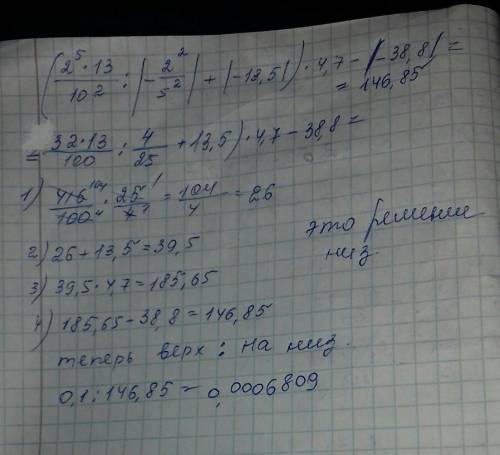 (2⁵·13/10² : |-2²/5²| + |-13,5|)·4,7-|-38,8|=
=146,85
=32·13/100 : 4/25 + 13,5)·4,7-38,8=
1) 416¹⁰⁴/100₄ · 25¹/4₁ = 104/4 = 26
2) 26+13,5=39,5
3) 39,5·4,7=185,65
4) 185,65-38,8=146,85
теперь верх : на низ.
0,1:146,85=0,0006809
это решение
низ.